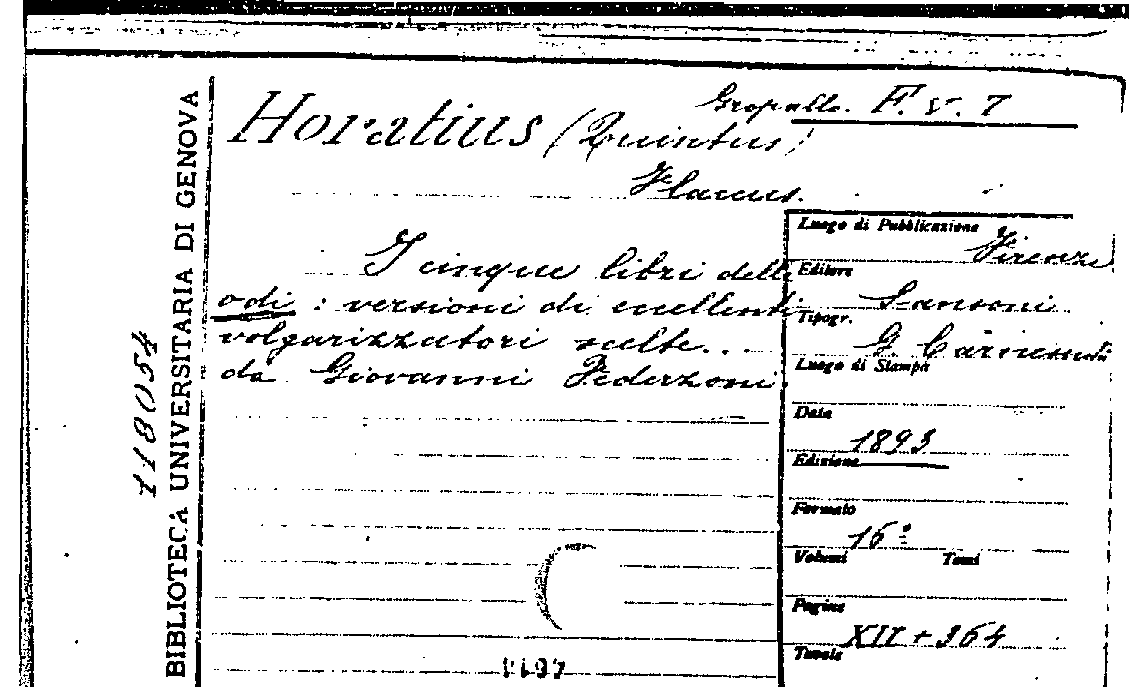 Gropallo. F. V. 7
Horatius (Quintus)
Flaccus.
I cinque libri delle
odi : versioni di eccellenti
volgarizzatori scelte...
da Giovanni Federzoni.
Luogo di Pubblicazione
Firenze
Editore
Sansoni
Tipogr.
G. Carnesecchi
Luogo di Stampa
Data
1893
Edizione
Formato
16º
Volumi Tomi
Pagine
XII + 364
Tavole
BIBLIOTECA UNIVERSITARIA DI GENOVA
118054